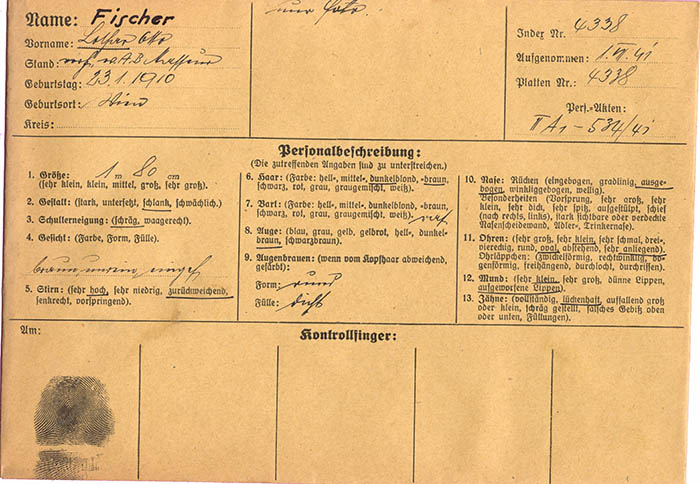 Name: Fischer
Vorname: Lothar Otto
Stand: verh.
Geburtstag: 23.1.1910
Geburtsort: Wien
Kreis:
nur Foto.
Index Nr. 4338
Aufgenommen: 1.VI.41
Platten Nr.: 4338
Pers.-Akten:
II A1-534/41
Personalbeschreibung:
(Die zutreffenden Angaben sind zu unterstreichen.)
1. Größe: 1 m 80 cm
(sehr klein, klein, mittel, groß, sehr groß).
2. Gestalt: (stark, untersetzt, schlank, schwächlich.)
3. Schulterneigung: (schräg, waagerecht.)
4. Gesicht: (Farbe, Form, Fülle).
5. Stirn: (sehr hoch, sehr niedrig, zurückweichend,
senkrecht, vorspringend).
6. Haar: (Farbe: hell-, mittel-, dunkelblond, -braun,
schwarz, rot, grau, graugemischt, weiß).
7. Bart: (Farbe: hell-, mittel-, dunkelblond, -braun,
schwarz, rot, grau, graugemischt, weiß).
8. Auge: (blau, grau, gelb, gelbrot, hell-, dunkel-
braun, schwarzbraun).
9. Augenbrauen: (wenn vom Kopfhaar abweichend,
gefärbt):
Form: rund
Fülle: dicht
10. Nase: Rücken (eingebogen, gradlinig, ausge-
bogen, winkliggebogen, wellig).
Besonderheiten (Vorsprung, sehr groß, sehr
klein, sehr dick, sehr spitz, aufgestülpt, schief
(nach rechts, links), stark sichtbare oder verdeckte
Nasenscheidewand, Adler-, Trinkernase).
11. Ohren: (sehr groß, sehr klein, sehr schmal, drei-,
viereckig, rund, oval, abstehend, sehr anliegend).
Ohrläppchen: (zwickelförmig, rechtwinklig, bo-
genförmig, freihängend, durchlocht, durchrissen).
12. Mund: (sehr klein, sehr groß, dünne Lippen,
aufgeworfene Lippen).
13. Zähne: (vollständig, lückenhaft, auffallend groß
oder klein, schräg gestellt, falsches Gebiß oben
oder unten, Füllungen).
Am:
Kontrollfinger: